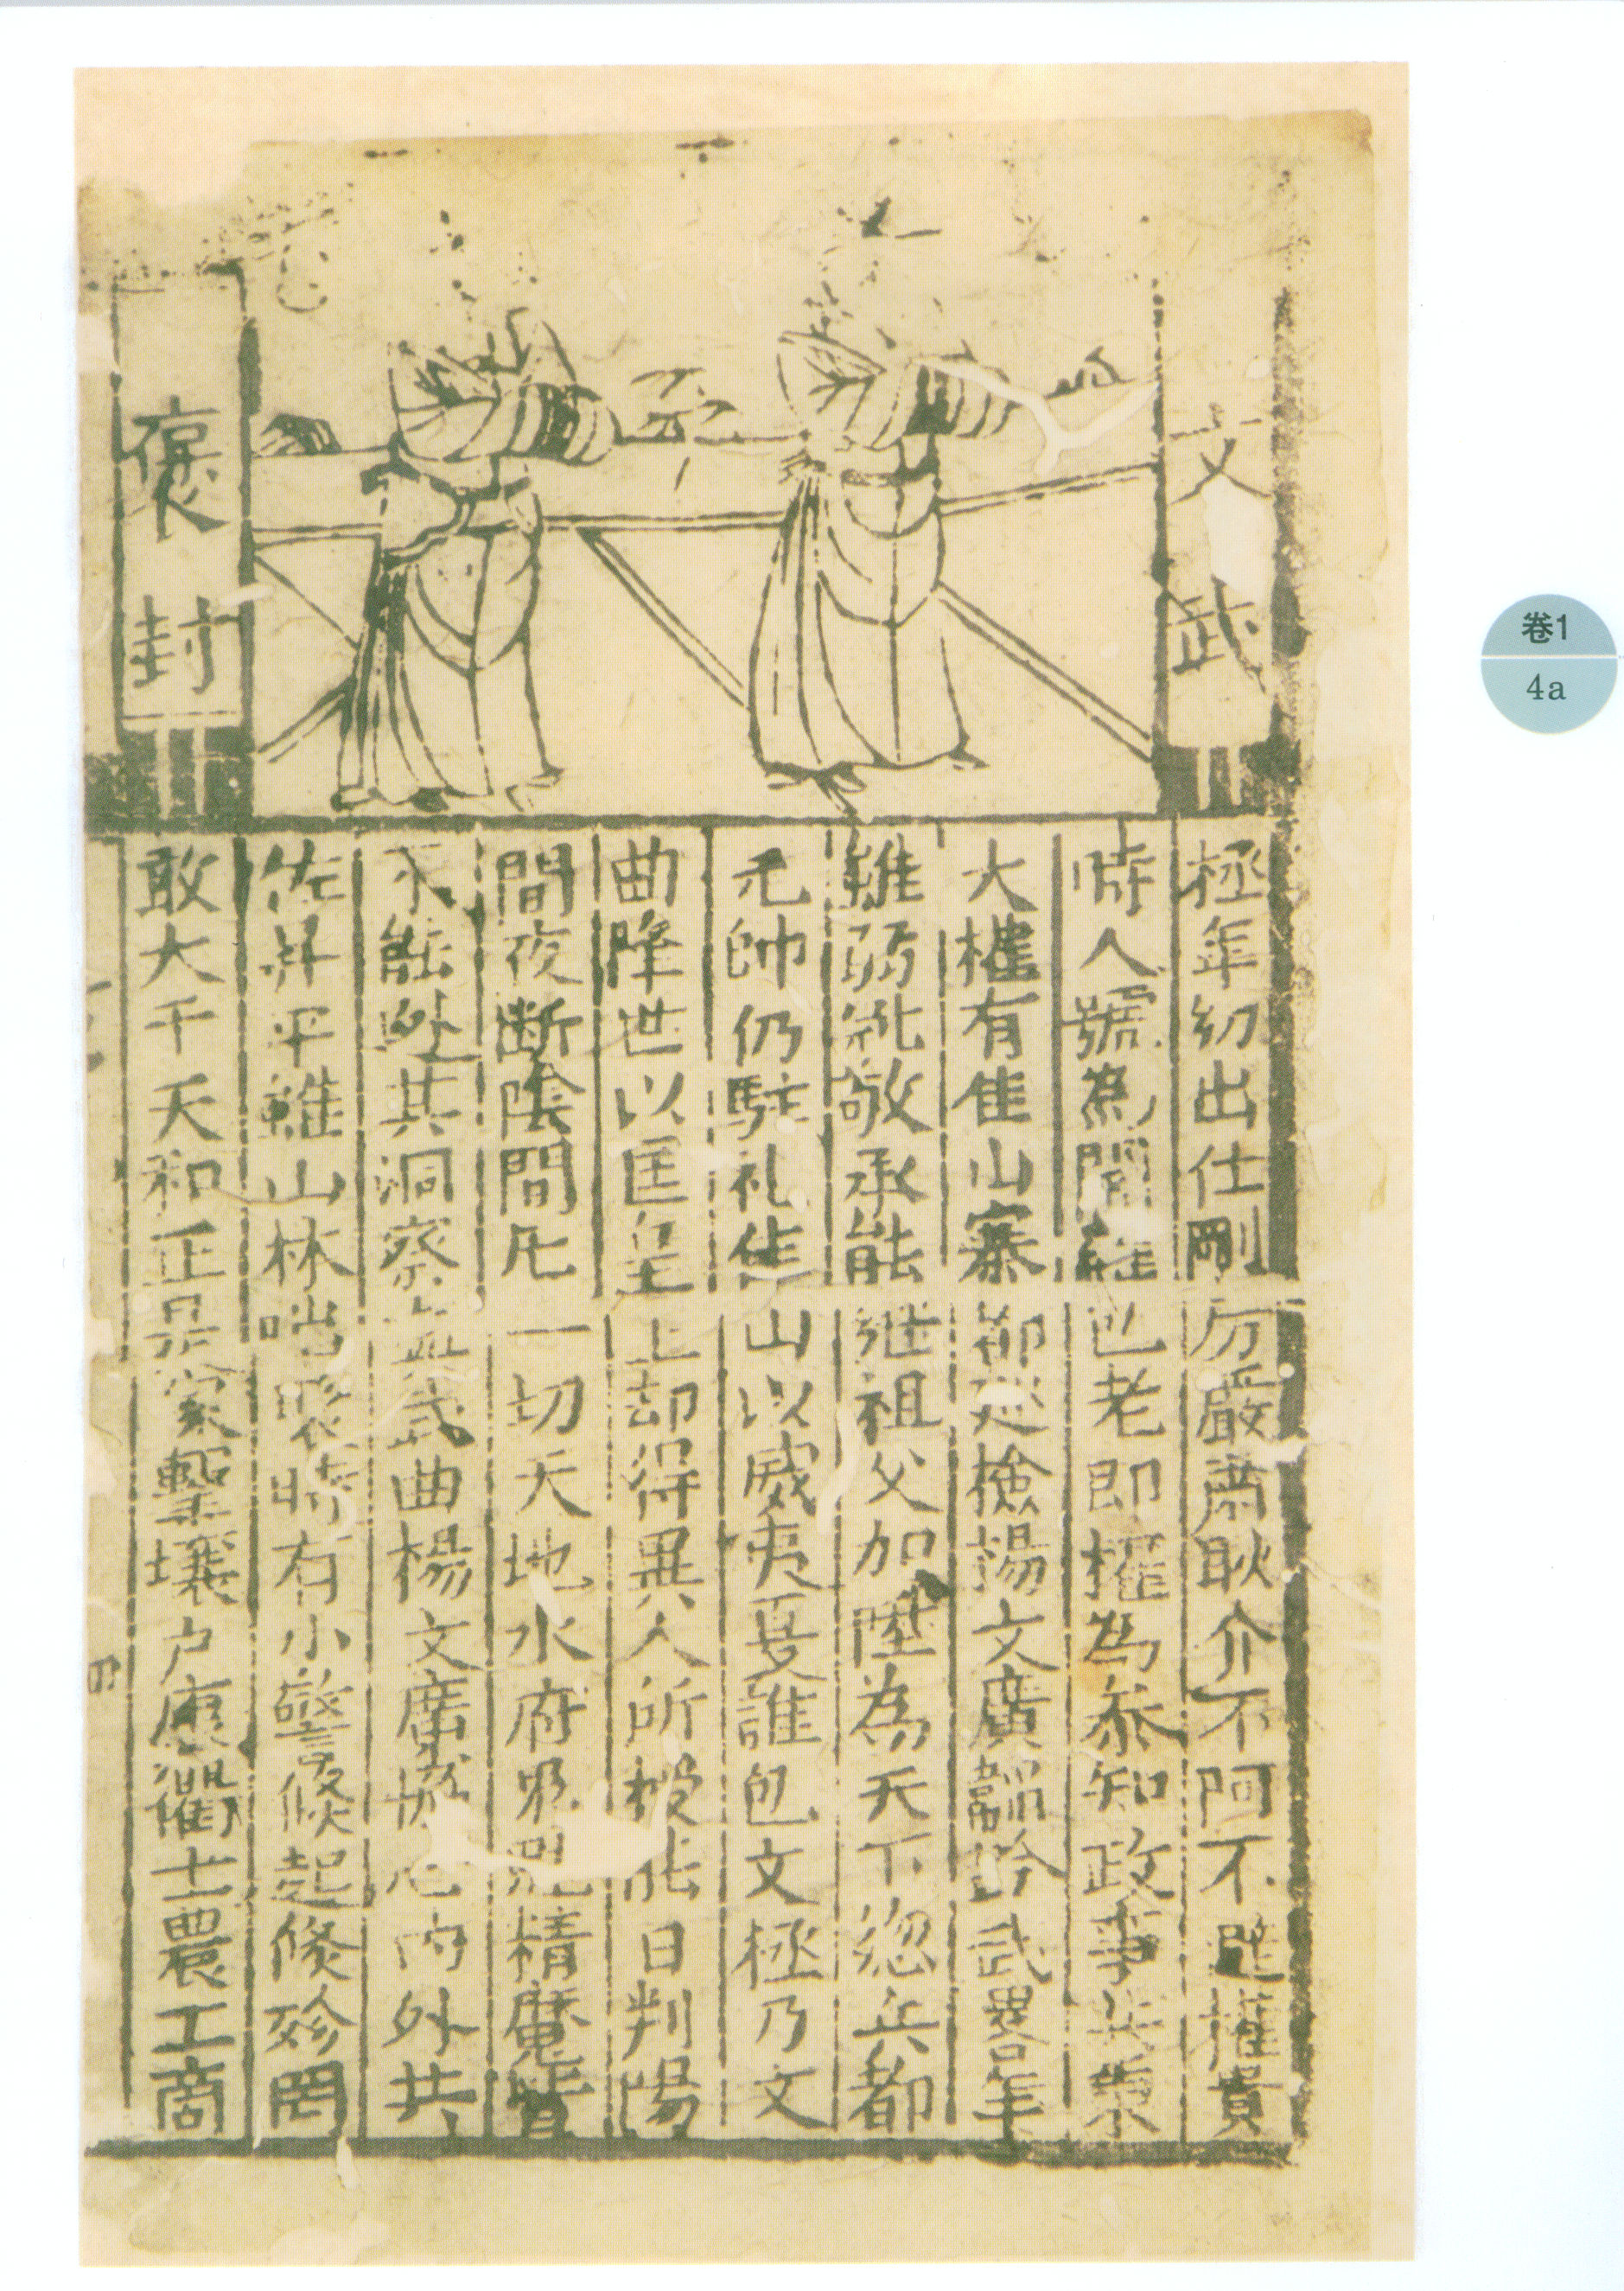 文武
褒封
極年幼出仕剛方嚴肅耿介不阿不避權貴
時人號為閻羅包老即擢為叅知政事共秉
大權有隹山寨都巡檢揚文廣韜鈐武畧年
雖弱兆敬承能继祖父加陞為天下緫兵都
元帥仍駐礼隹山以威夷夏誰包文極乃文
曲降世以匡皇上却得異人所授能日判陽
間夜断陰間凡一切天地水府邪魔精魔皆
不能处其洞察武曲楊文廣心内外共
佐昇平雖山林哨聚時有小警倏起倏殄罔
敢大干天和正是家擊壤户康衢士農工商
卷1
4a